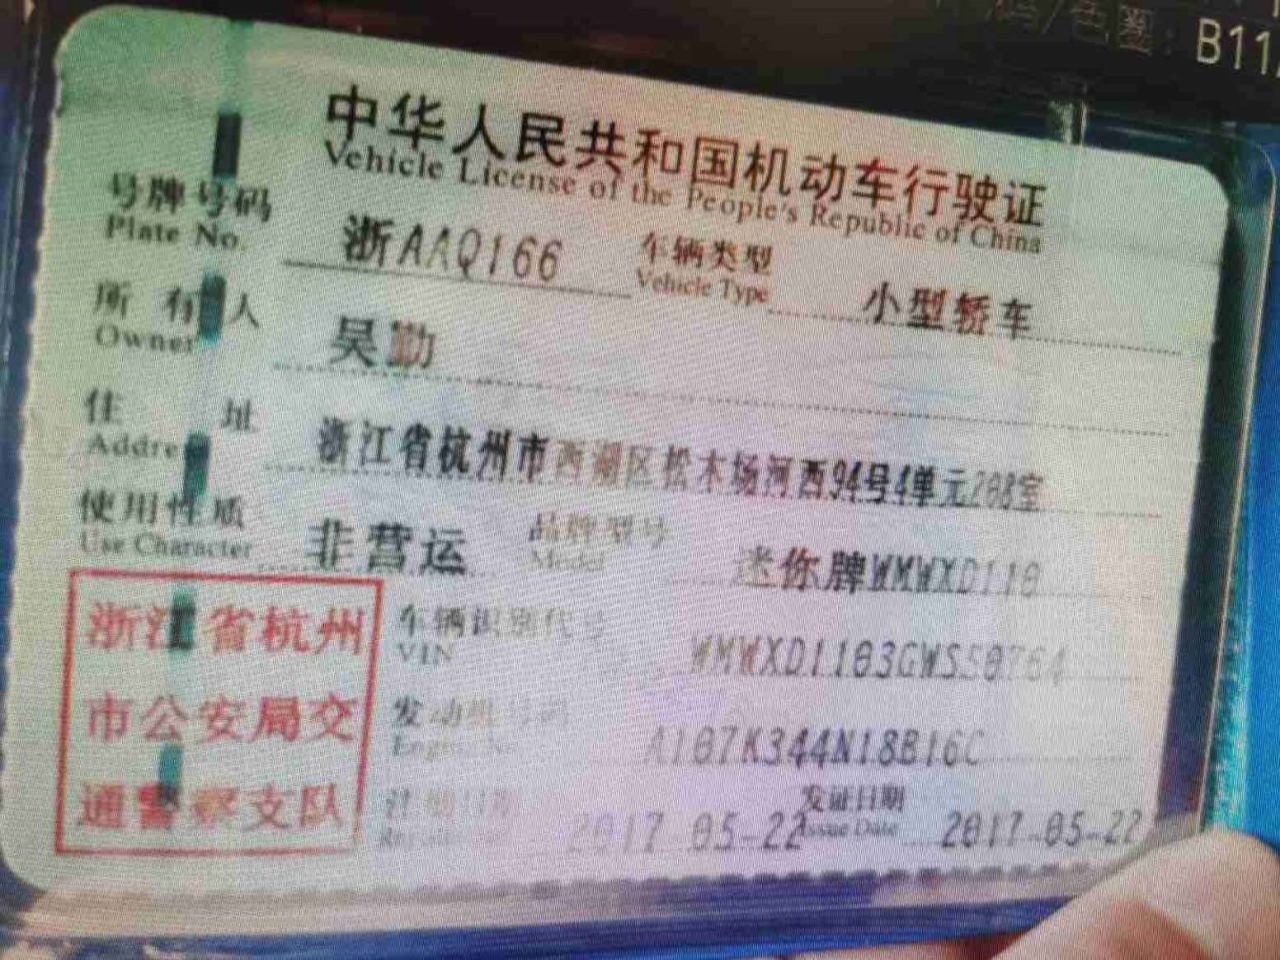 B11
中华人民共和国机动车行驶证
Vehicle License of the People's Republic of China
号牌号码 浙AAQ166 车辆类型 小型轿车
Plate No. Vehicle Type
所有人 吴勤
Owner
住址 浙江省杭州市西湖区松木场河西94号4单元208室
Addre
使用性质 非营运 品牌型号 迷你牌WMWXD110
Use Character Model
浙江省杭州 车辆识别代号 WMWXD1103GWS50764
VIN
市公安局交 发动机号码 A107K344N18B16C
通警察支队 注册日期 2017-05-22 发证日期 2017-05-22
Issue Date